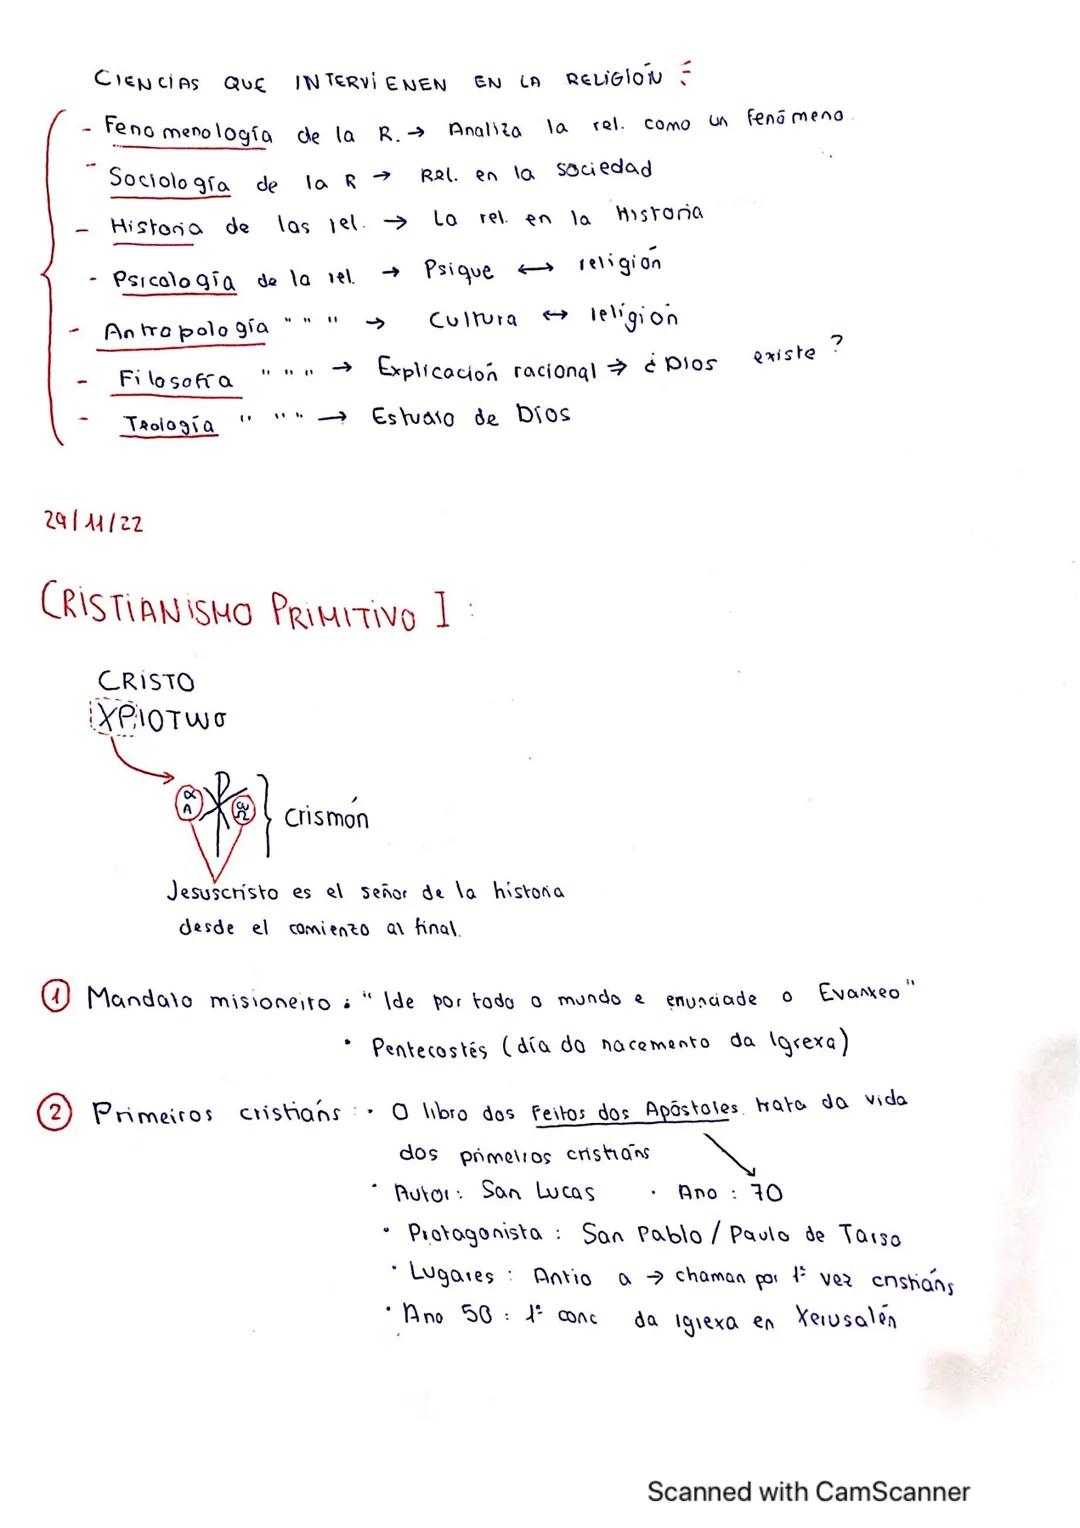 CIENCIAS QUE INTERVIENEN EN LA RELIGIÓN :
- Fenomenología de la R. → Analiza la rel. como un fenómeno.
- Sociología de la R → Rel. en la sociedad
- Historia de las rel. → La rel. en la Historia
- Psicología de la rel. → Psique ↔ religión
- Antropología " " " → Cultura ↔ religión
- Filosofía " " " → Explicación racional ⇒ ¿Dios existe?
- Teología " " " → Estudio de Dios
29/11/22
CRISTIANISMO PRIMITIVO I :
CRISTO
XPIOTWσ
α A ω Ω } crismón
Jesuscristo es el señor de la historia
desde el comienzo al final.
① Mandato misioneiro : " Ide por todo o mundo e enunciade o Evanxeo "
• Pentecostés (día do nacemento da Igrexa)
② Primeiros cristiáns : • O libro dos Feitos dos Apóstoles. trata da vida
dos primeiros cristiáns
• Autor : San Lucas • Ano : 70
• Protagonista : San Pablo / Paulo de Tarso
• Lugares : Antio a → chaman por 1ª vez cristiáns
• Ano 50 : 1º conc da igrexa en Xerusalén
Scanned with CamScanner